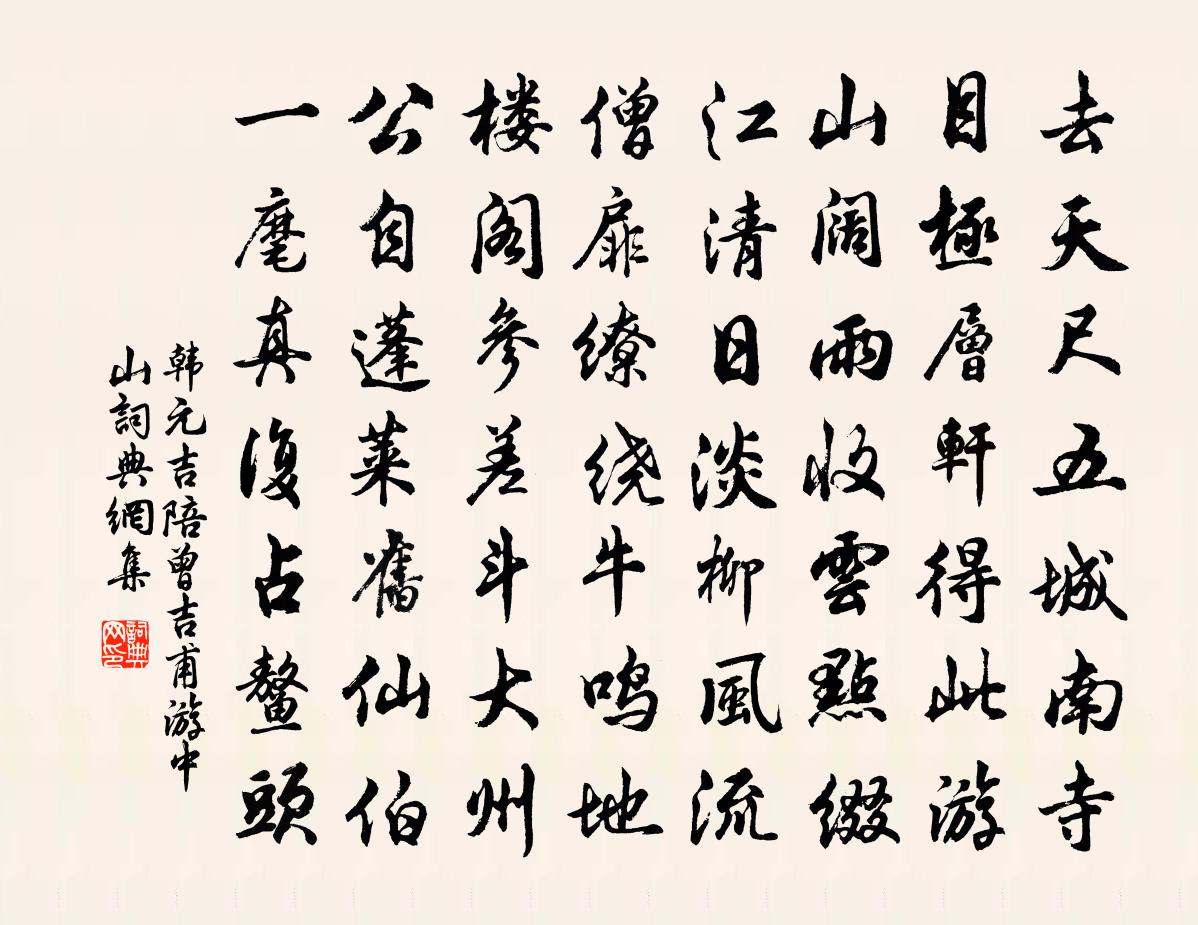 去天尺五城南寺
目極層軒得此游
山阔雨收雲點綴
江清日淡柳風流
僧扉缭绕牛鸣地
楼阁参差斗大州
公自蓬莱舊仙伯
一麾真復占鳌頭
韩元吉陪曾吉甫游中
山詞典網集
詞典网印